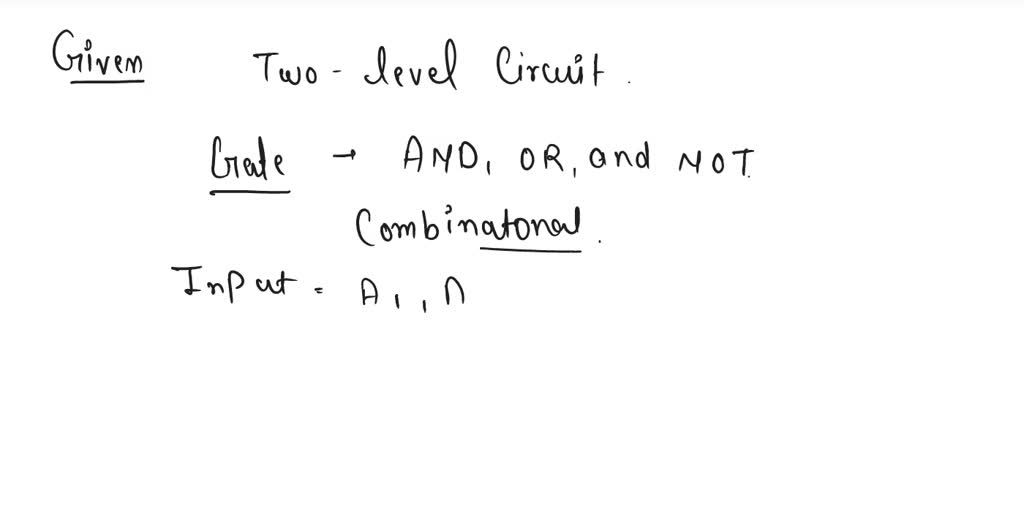 Given Two-level Circuit.
Gate → AND, OR, and NOT
Combinatonal.
Input = A, , n